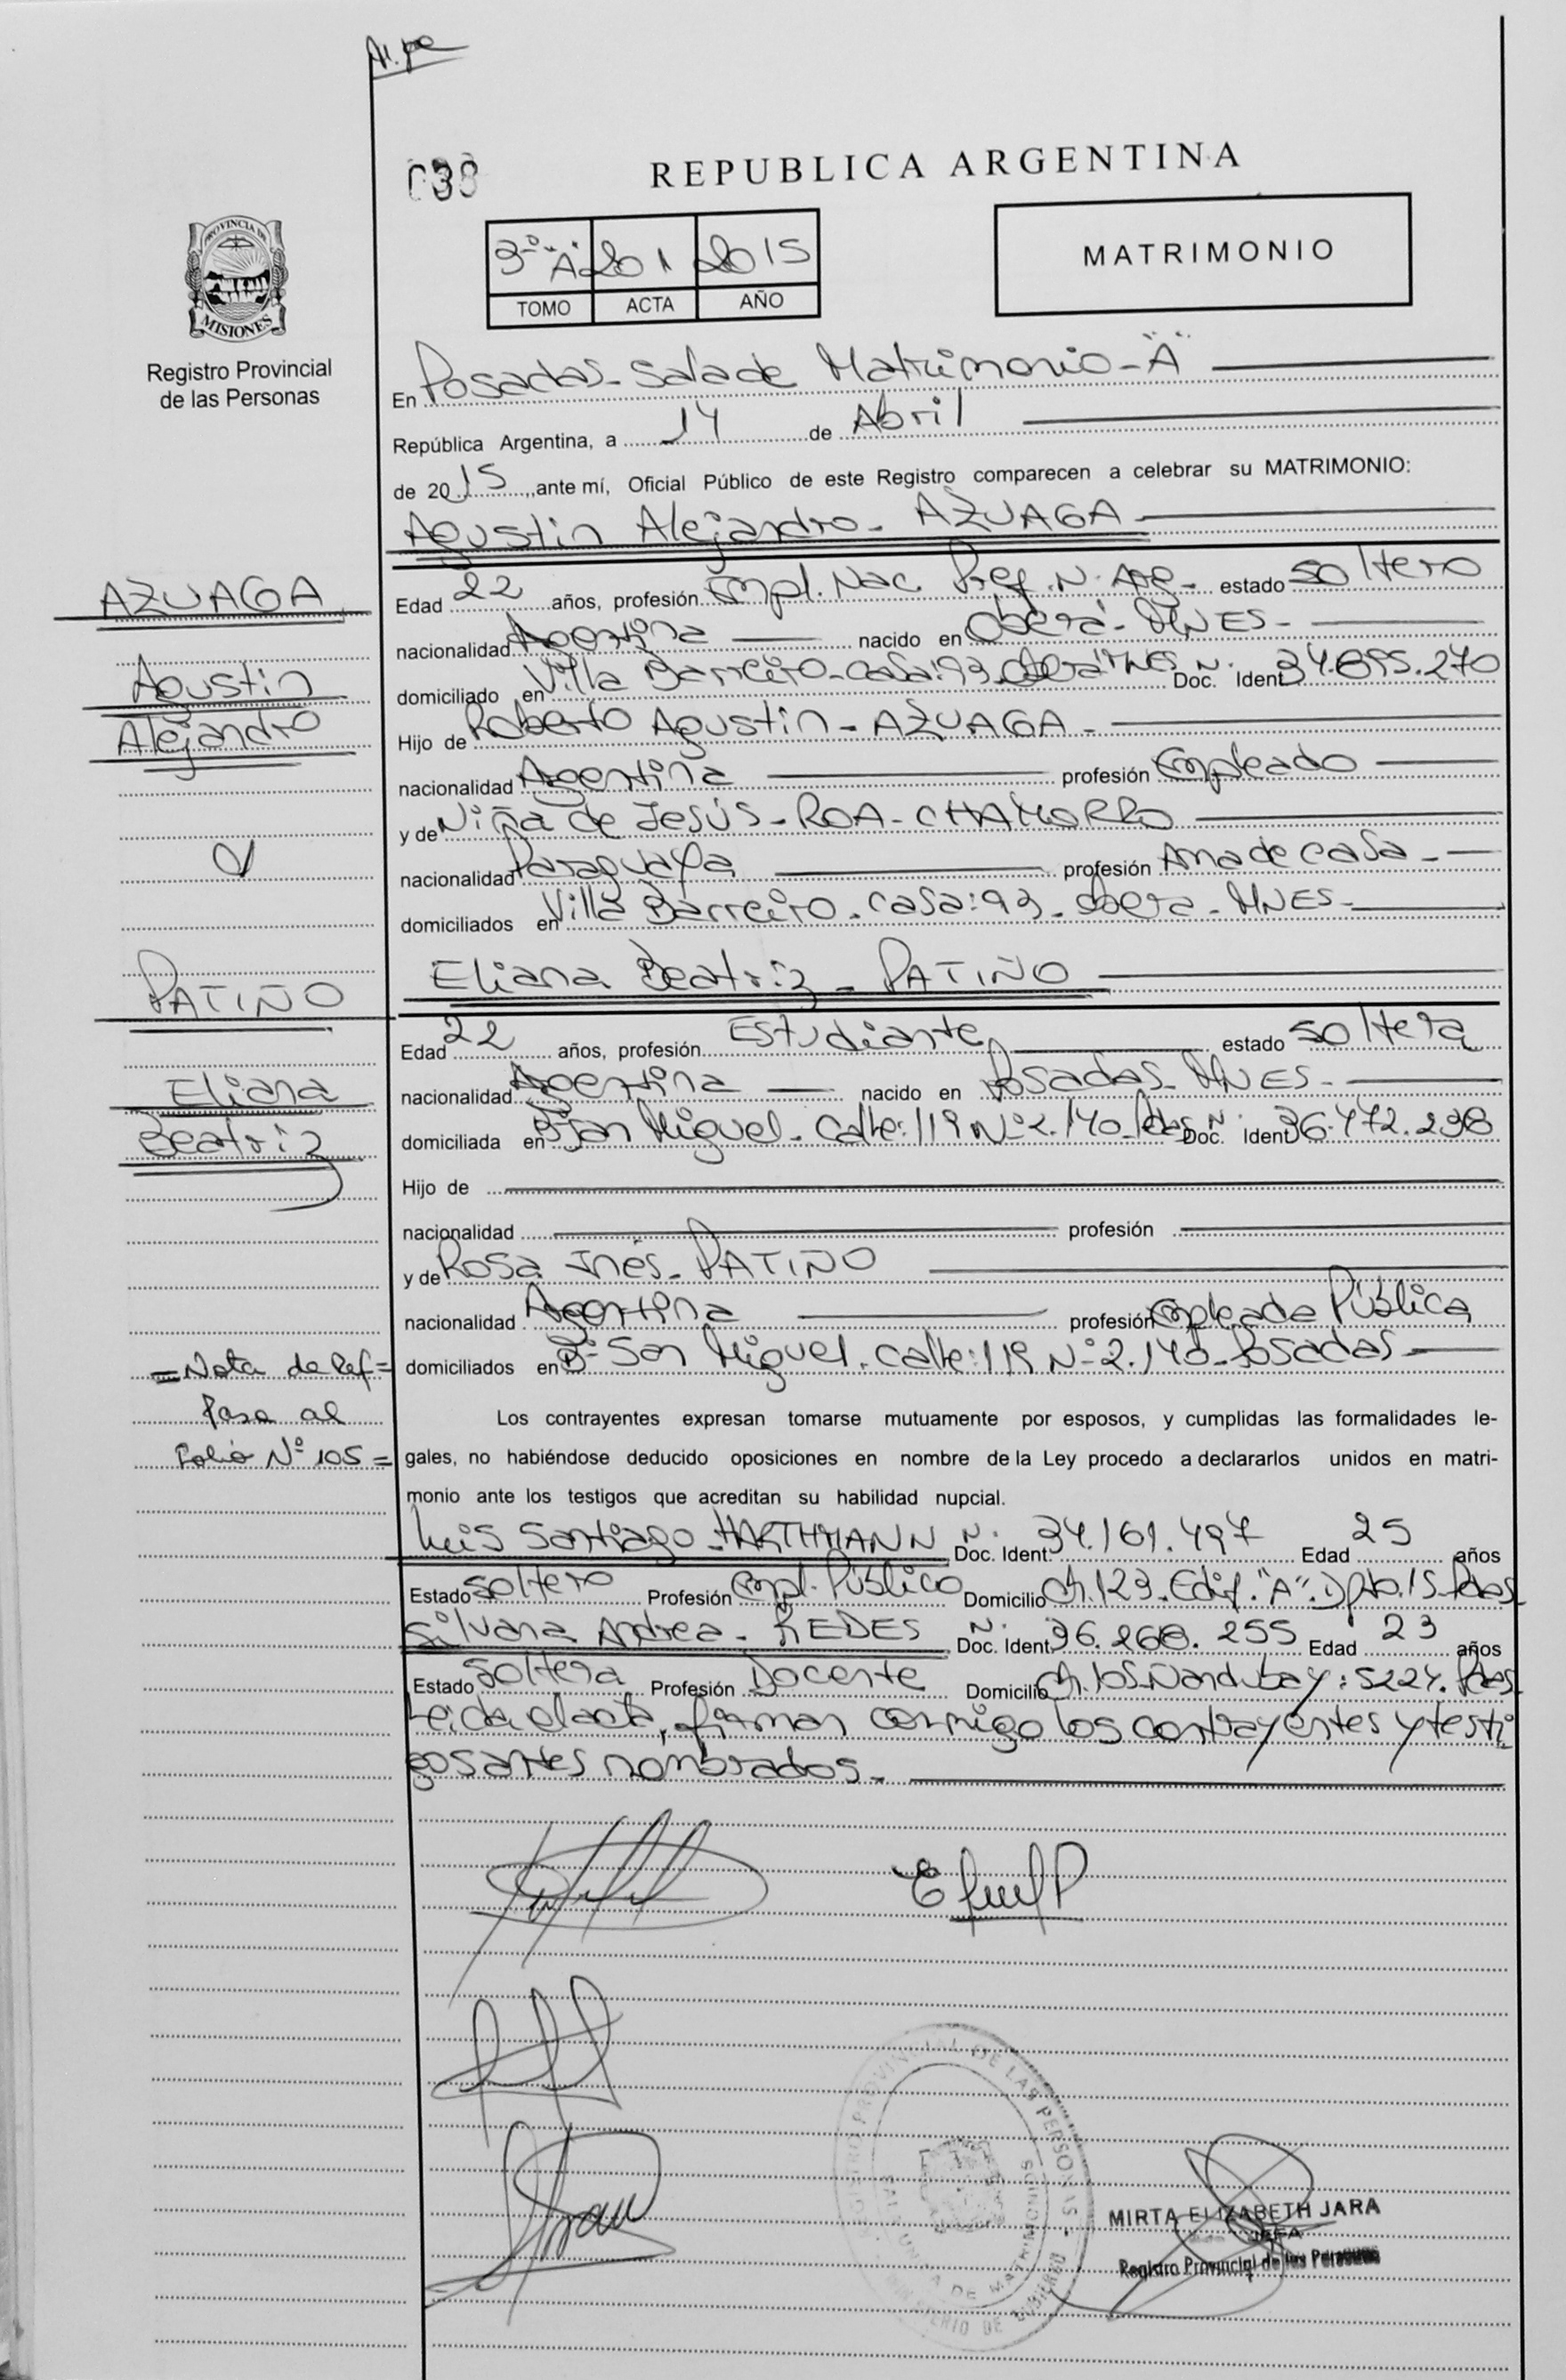 038
REPUBLICA ARGENTINA
3º "A" 201 2015
TOMO ACTA AÑO
MATRIMONIO
PROVINCIA DE
MISIONES
Registro Provincial
de las Personas
En Posadas - Sala de Matrimonio - "A"
República Argentina, a 14 de Abril
de 2015, ante mí, Oficial Público de este Registro comparecen a celebrar su MATRIMONIO:
Agustin Alejandro - AZUAGA
AZUAGA
Agustin
Alejandro
Edad 22 años, profesión Empl. Nac. Pref. N. Arg. estado soltero
nacionalidad Argentina nacido en Oberá - MNES -
domiciliado en Villa Barreiro - casa: 93 - Obera MNES Doc. Ident. N. 34.895.270
Hijo de Roberto Agustin - AZUAGA -
nacionalidad Argentina profesión Empleado
y de Niña de Jesús - ROA - CHAMORRO
nacionalidad Paraguaya profesión Ama de casa -
domiciliados en Villa Barreiro - casa: 93 - Obera - MNES -
Eliana Beatriz - PATIÑO
PATIÑO
Eliana
Beatriz
Edad 22 años, profesión Estudiante estado soltera
nacionalidad Argentina nacido en Posadas - MNES -
domiciliada en Bº San Miguel - Calle: 119 Nº 2.140 - Pdas Doc. Ident. N. 36.472.238
Hijo de
nacionalidad profesión
y de Rosa Inés - PATIÑO
nacionalidad Argentina profesión Empleada Pública
domiciliados en Bº San Miguel - Calle: 119 Nº 2.140 - Posadas
= Nota de Ref =
Pasa al
Folio Nº 105 =
Los contrayentes expresan tomarse mutuamente por esposos, y cumplidas las formalidades le-
gales, no habiéndose deducido oposiciones en nombre de la Ley procedo a declararlos unidos en matri-
monio ante los testigos que acreditan su habilidad nupcial.
Luis Santiago - HARTHMANN Doc. Ident. N. 34.161.497 Edad 25 años
Estado soltero Profesión Empl. Público Domicilio Ch. 123 - Edif. "A" - Dpto. 15 - Pdas
Silvana Andrea - REDES Doc. Ident. N. 36.268.255 Edad 23 años
Estado soltera Profesión Docente Domicilio Ch. los Ñandubay: 5224. Pdas
Leida el acta, firman conmigo los contrayentes y testi
gos antes nombrados -
REGISTRO PROVINCIAL DE LAS PERSONAS -
MINISTERIO DE GOBIERNO
DE MATRIMONIOS
MIRTA ELIZABETH JARA
JEFA
Registro Provincial de las Personas